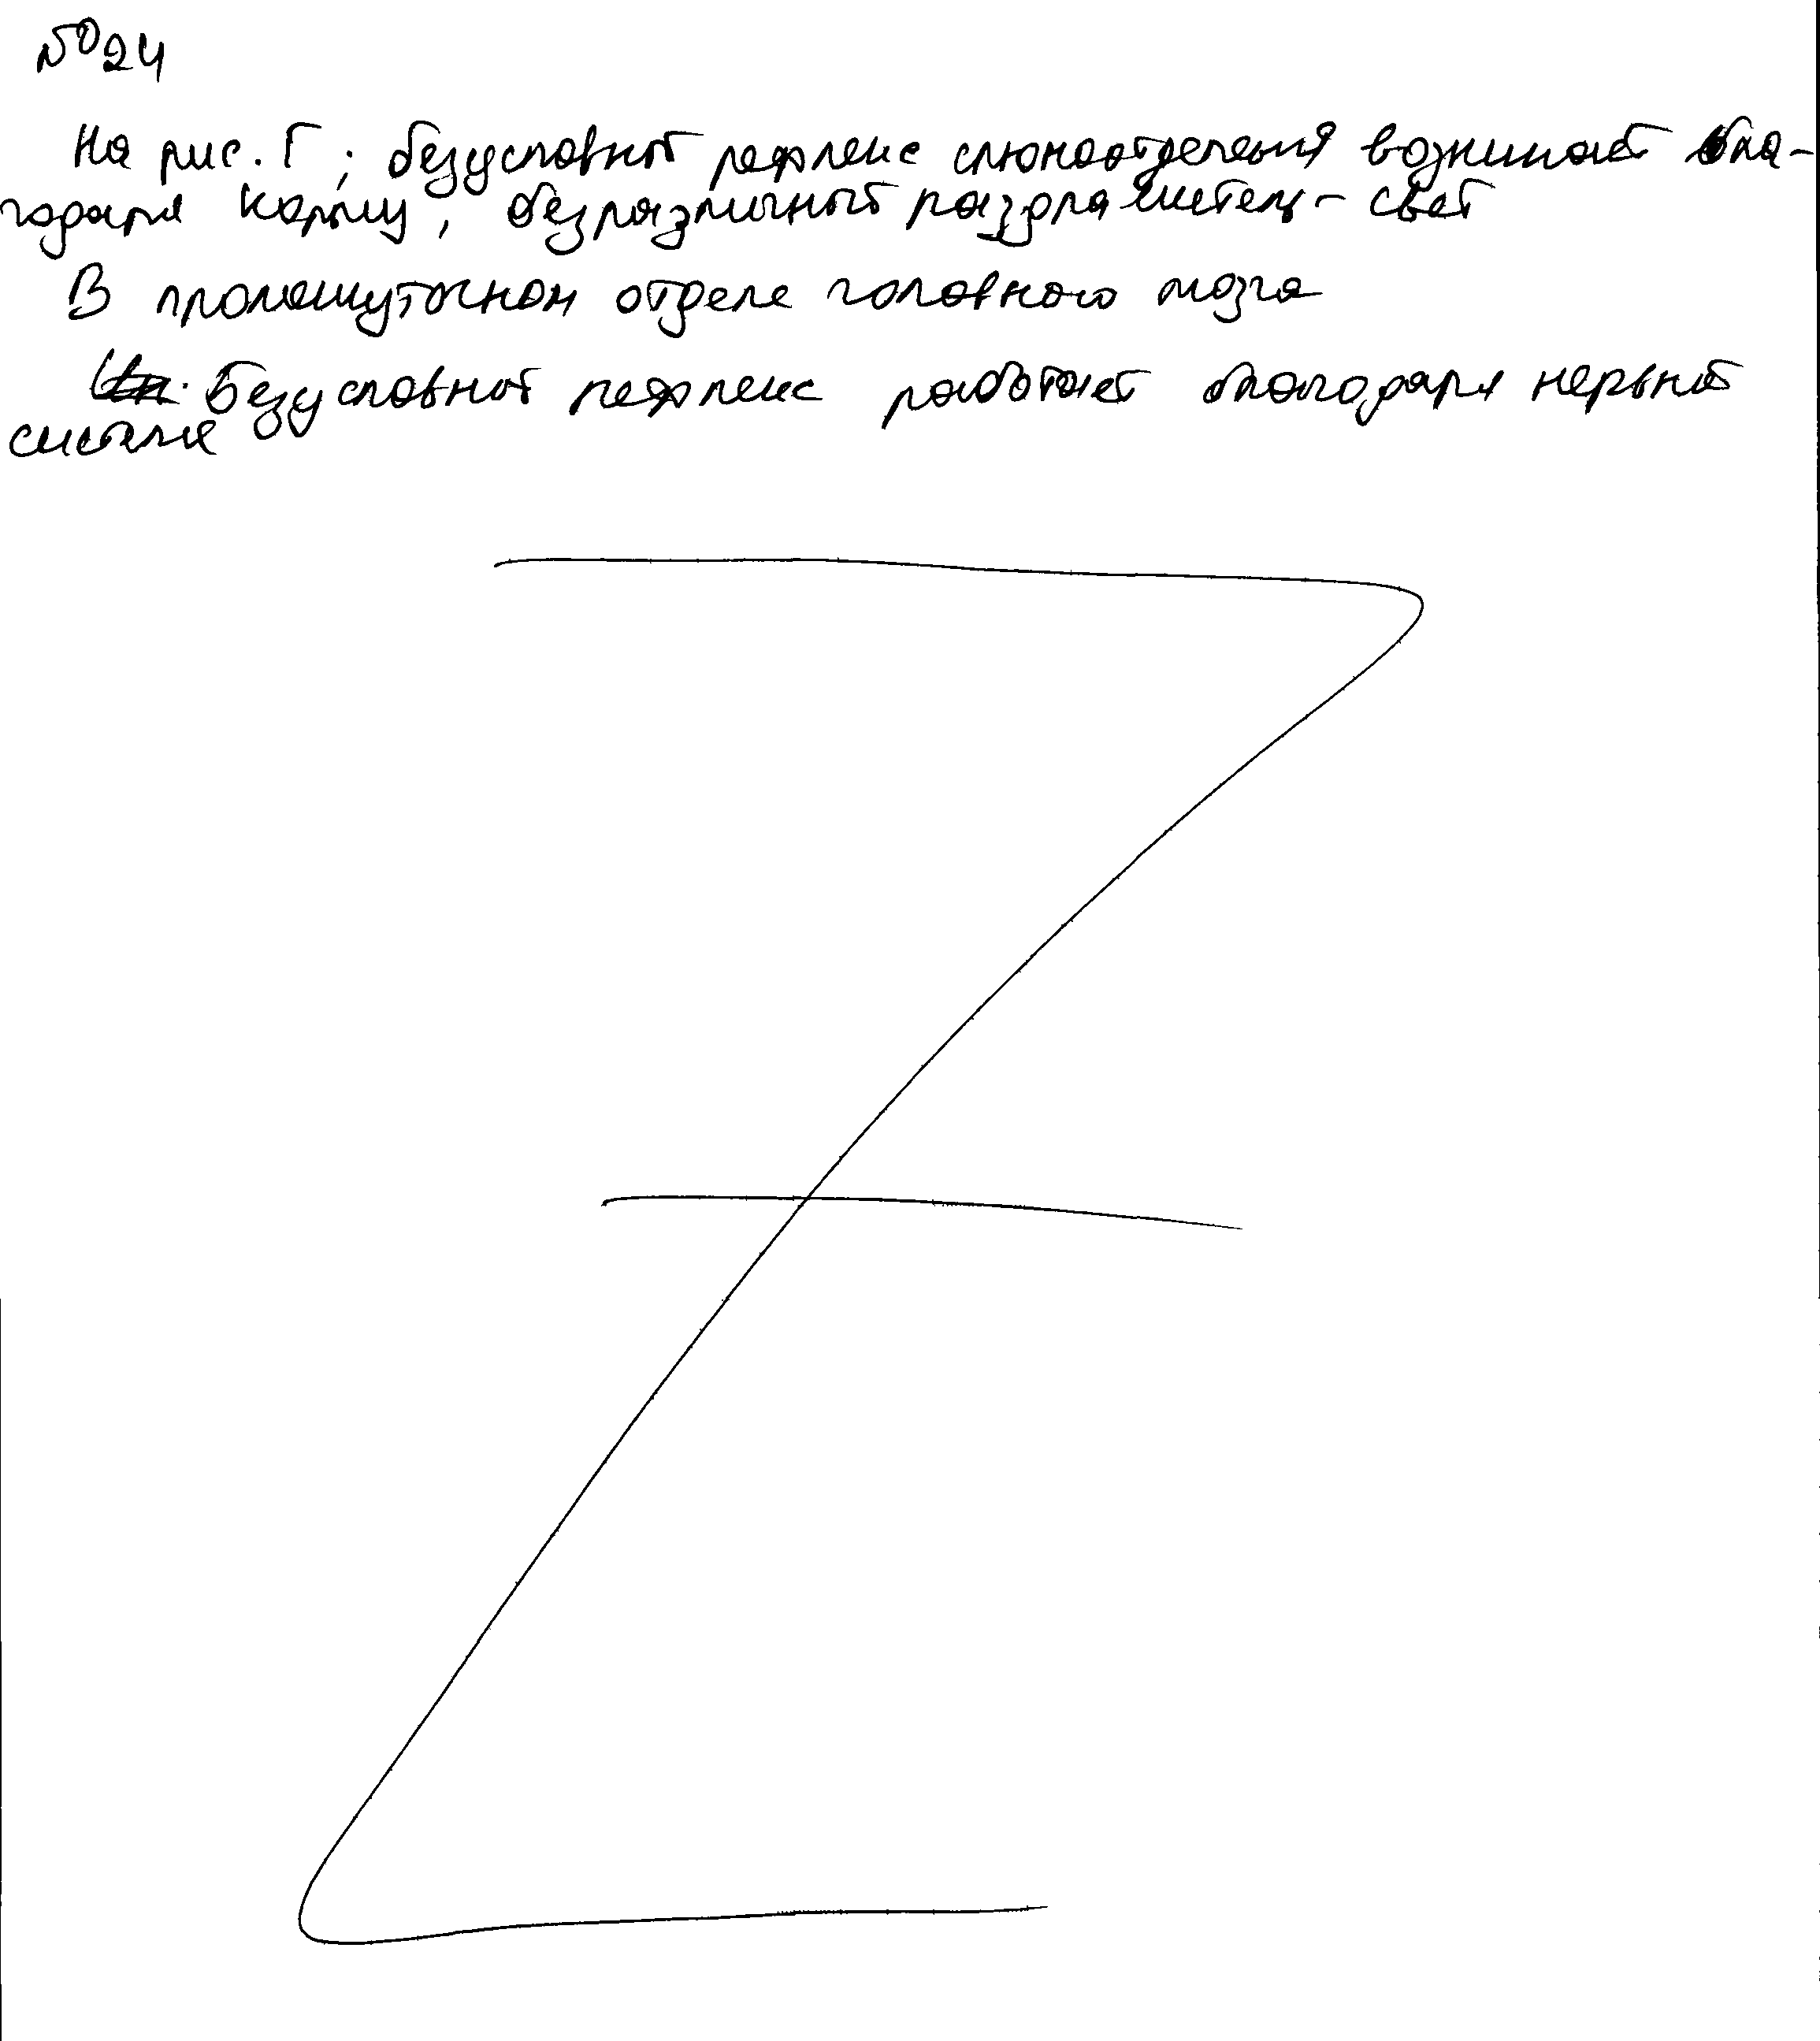 № 24
На рис. Г; безусловный рефлекс слюноотделения возникает бла-
годаря корму, безразличный раздражитель - свет
В промежуточном отделе головного мозга
Безусловный рефлекс работает благодаря нервной
системе